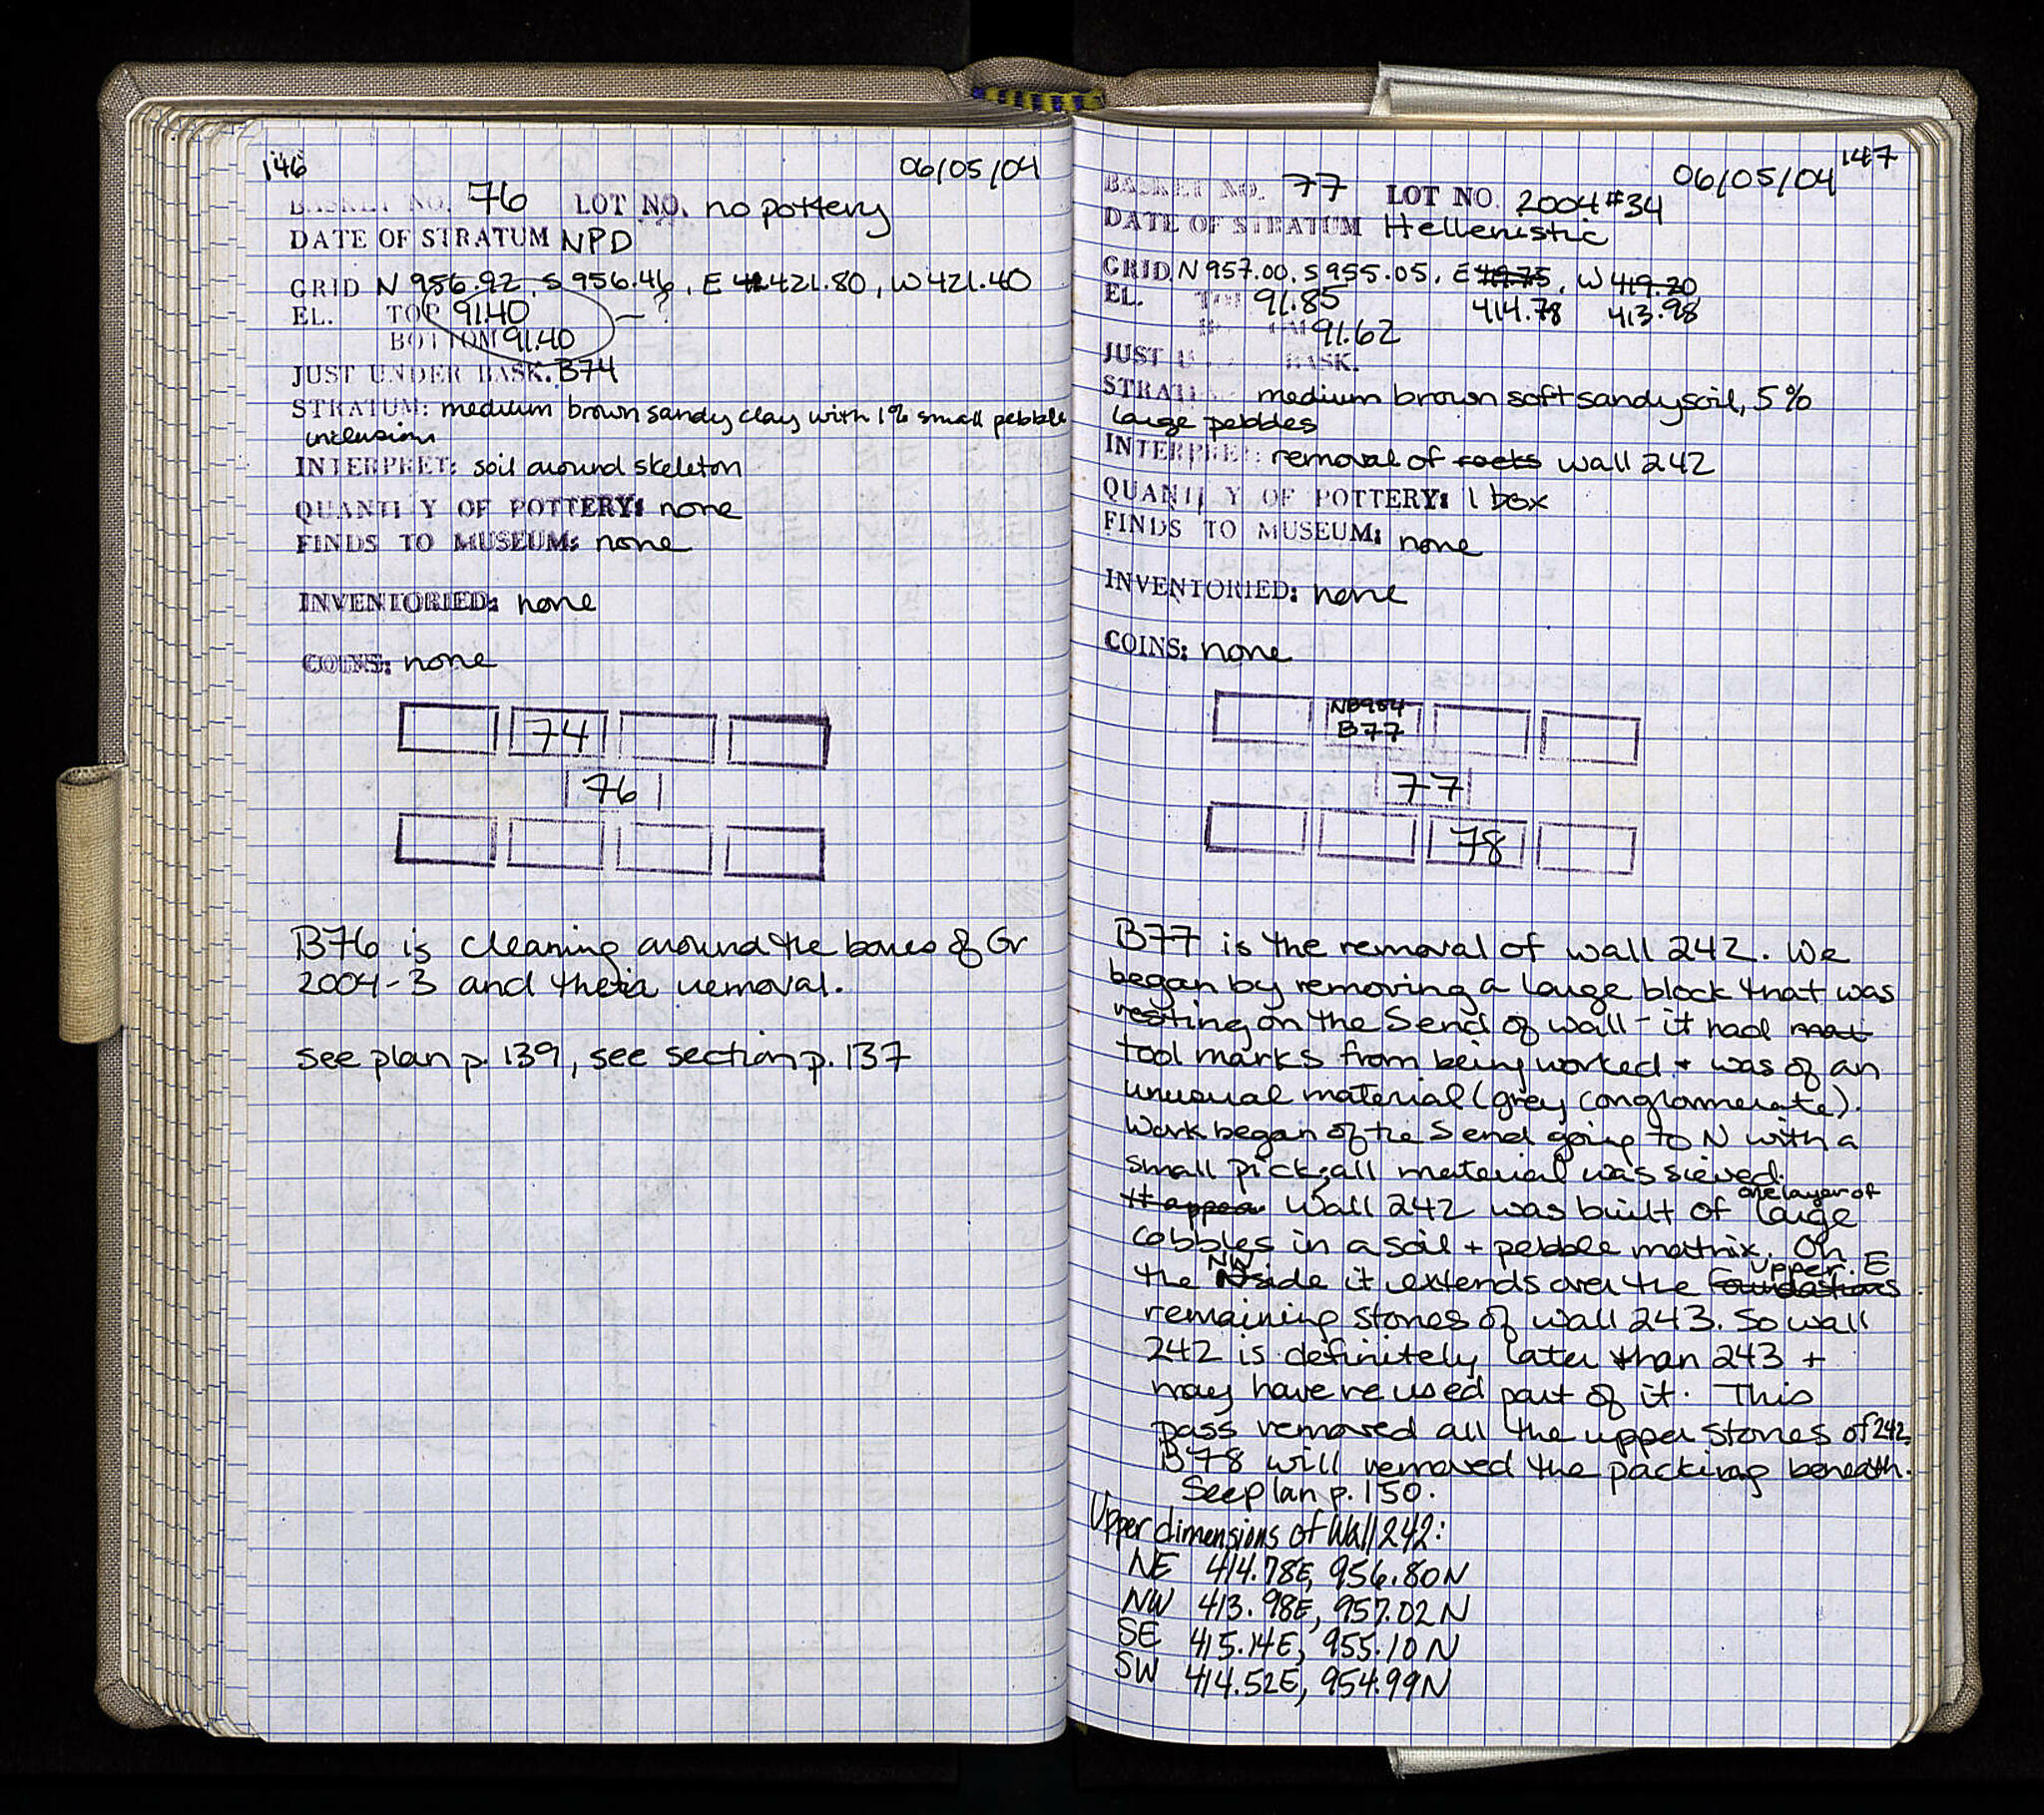 146
06/05/04
BASKET NO. 76 LOT NO. no pottery
DATE OF STRATUM NPD
GRID N 956.92, S 956.46, E 421.80, W 421.40
EL. TOP 91.40 — ?
BOTTOM 91.40
JUST UNDER BASK. B74
STRATUM: medium brown sandy clay with 1% small pebble
inclusions
INTERPRET: soil around skeleton
QUANTI Y OF POTTERY: none
FINDS TO MUSEUM: none
INVENTORIED: none
COINS: none
74
76
B76 is cleaning around the bones of Gr
2004-3 and their removal.
see plan p. 139, see section p. 137
147
06/05/04
BASKET NO. 77 LOT NO. 2004 #34
DATE OF STRATUM Hellenistic
GRID N 957.00, S 955.05, E 419.75, W 419.20
EL. TOP 91.85 414.78 413.98
91.62
JUST U BASK.
STRAT medium brown soft sandy soil, 5%
large pebbles
INTERPRET: removal of rocks wall 242
QUANTI Y OF POTTERY: 1 box
FINDS TO MUSEUM: none
INVENTORIED: none
COINS: none
NB984
B77
77
78
B77 is the removal of wall 242. We
began by removing a large block that was
resting on the S end of wall - it had
tool marks from being worked + was of an
unusual material (grey conglomerate).
Work began of the S end going to N with a
small pick; all material was sieved.
It appear Wall 242 was built of one layer of large
cobbles in a soil + pebble matrix. On
the NW side it extends over the foundations upper E
remaining stones of wall 243. So wall
242 is definitely later than 243 +
may have reused part of it. This
pass removed all the upper stones of 242.
B78 will removed the packing beneath.
See plan p. 150.
Upper dimensions of Wall 242:
NE 414.78E, 956.80N
NW 413.98E, 957.02N
SE 415.14E, 955.10N
SW 414.52E, 954.99N